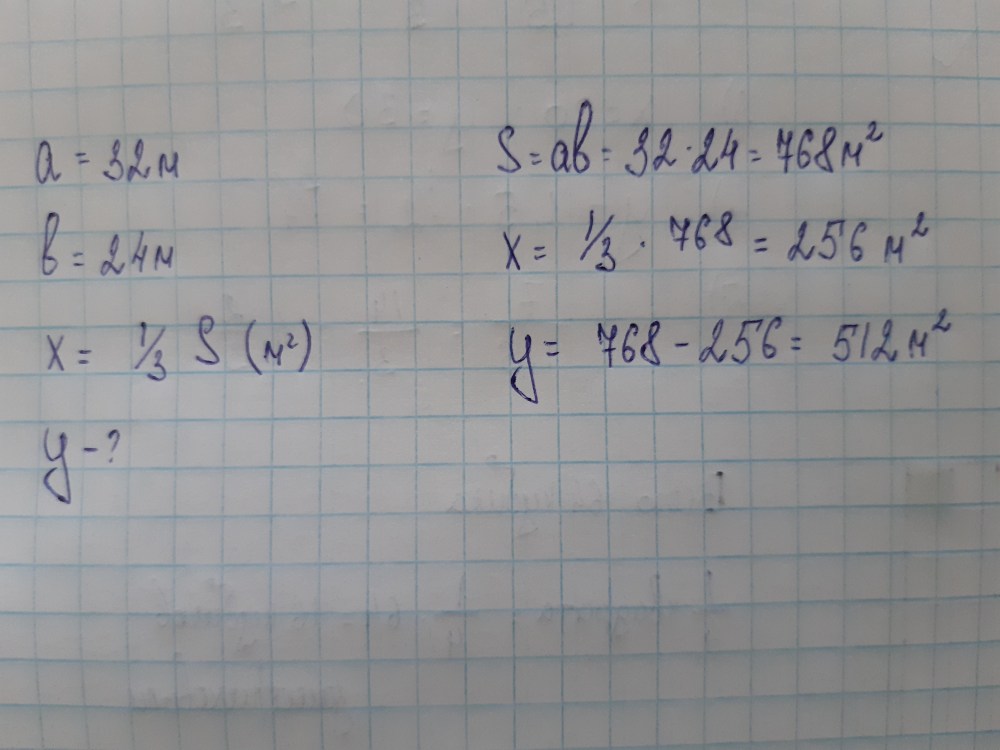 a = 32м
в = 24м
x = 1/3 S (м²)
y - ?
S = aв = 32 · 24 = 768м²
x = 1/3 · 768 = 256 м²
y = 768 - 256 = 512м²